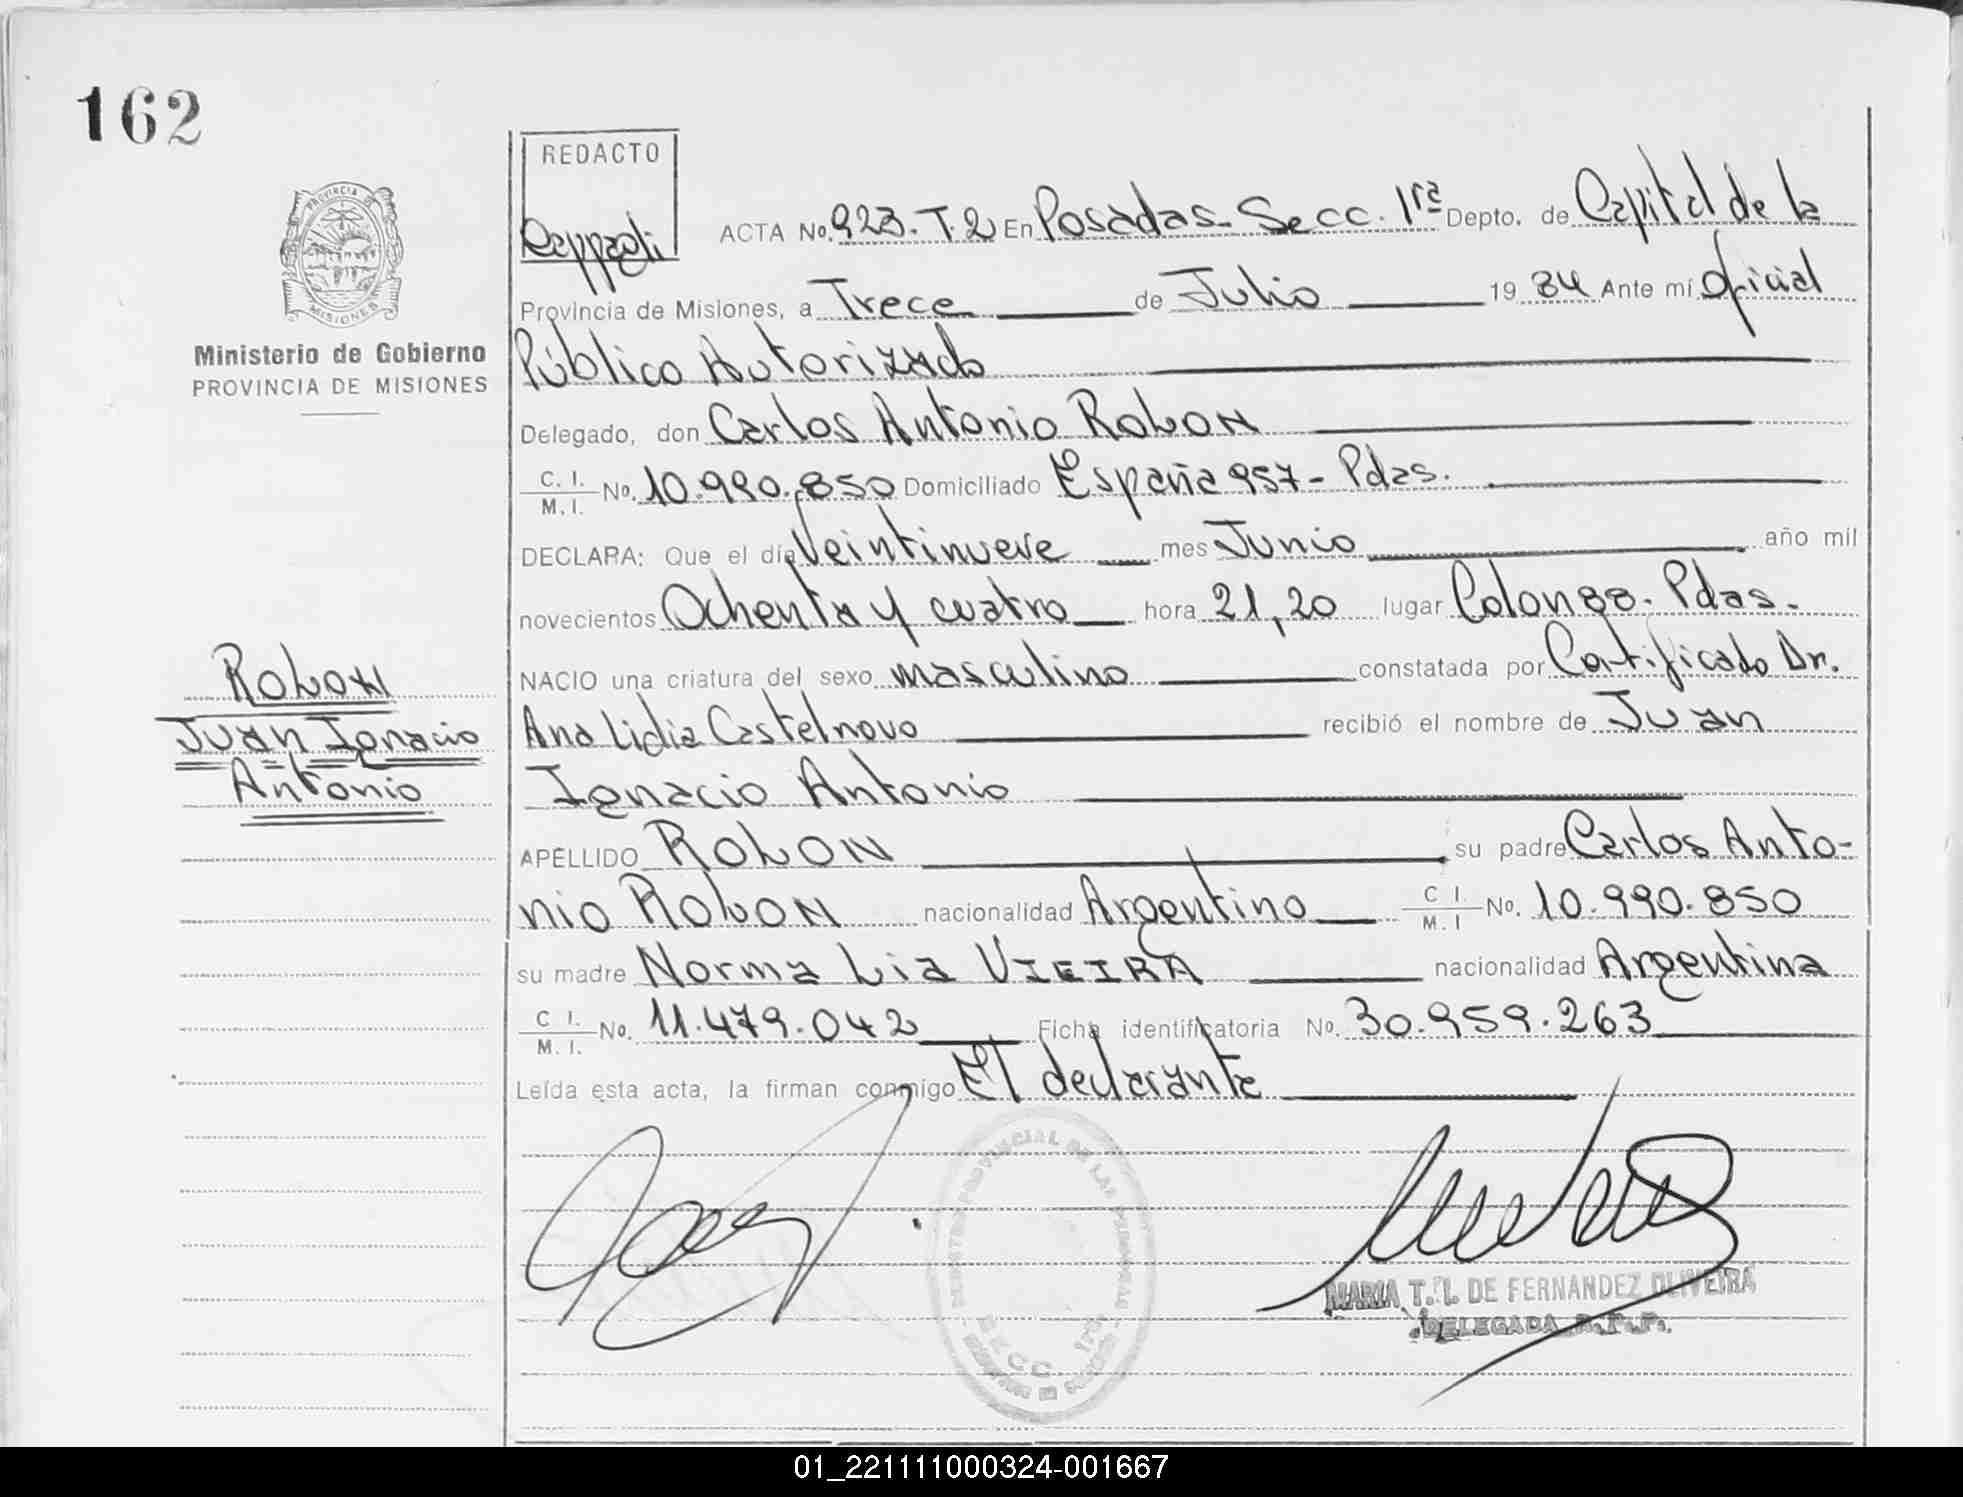 162
REDACTO
ACTA No. 923. T. 2 En Posadas - Secc. 1ra Depto. de Capital de la
Provincia de Misiones, a Trece de Julio 19 84 Ante mí Oficial
Público Autorizado
Delegado, don Carlos Antonio Rolon
C. I.
M. I. No. 10.990.850 Domiciliado España 957 - Pdas.
DECLARA: Que el día Veintinueve mes Junio año mil
novecientos Ochenta y cuatro hora 21,20 lugar Colongo. Pdas.
NACIO una criatura del sexo masculino constatada por Certificado Dr.
Ana Lidia Castelnovo recibió el nombre de Juan
Ignacio Antonio
APELLIDO ROLON su padre Carlos Anto-
nio Rolon nacionalidad Argentino C I. M. I No. 10.990.850
su madre Norma Lia VIEIRA nacionalidad Argentina
C I. M. I. No. 11.479.042 Ficha identificatoria No. 30.959.263
Leída esta acta, la firman conmigo El declarante
PROVINCIA DE
MISIONES
Ministerio de Gobierno
PROVINCIA DE MISIONES
ROLON
Juan Ignacio
Antonio
PROVINCIAL DE LAS PERSONAS
SECC. 1ra.
MARIA T. I. DE FERNANDEZ OLIVEIRA
DELEGADA R.P.P.
01_221111000324-001667